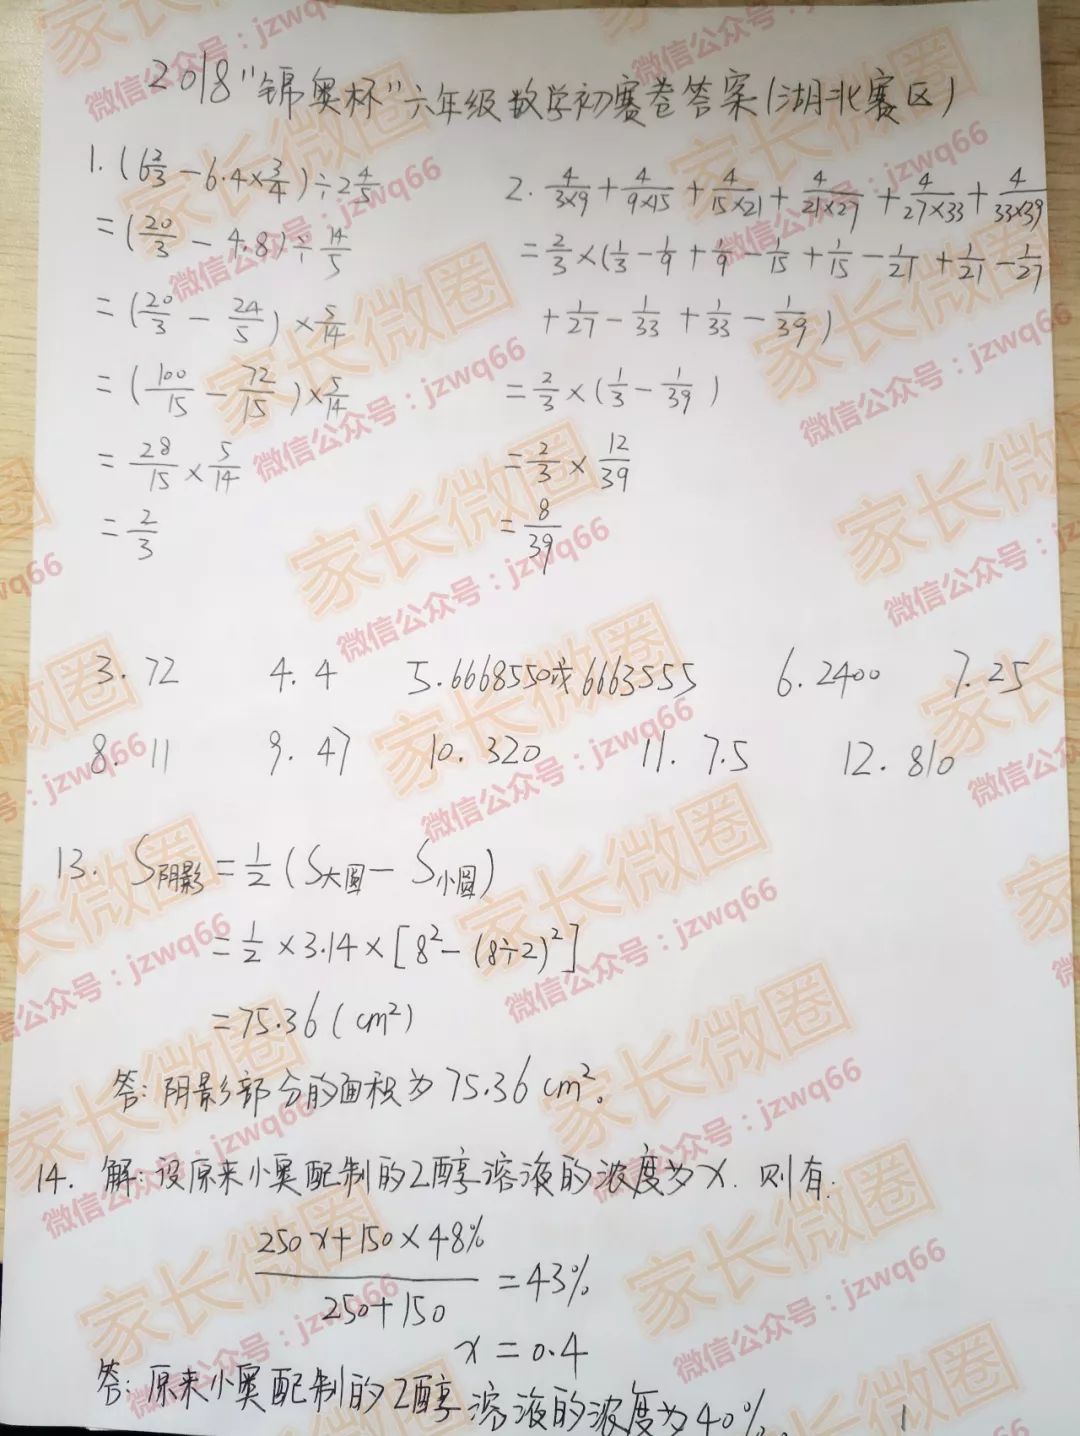 2018"锦奥杯"六年级数学初赛卷答案(湖北赛区)
1. (6 2/3 - 6.4×3/4)÷2 4/5
=(20/3 - 4.8)÷14/5
=(20/3 - 24/5)×5/14
=(100/15 - 72/15)×5/14
=28/15×5/14
=2/3
2. 4/3×9 + 4/9×15 + 4/15×21 + 4/21×27 + 4/27×33 + 4/33×39
=2/3×(1/3 - 1/9 + 1/9 - 1/15 + 1/15 - 1/21 + 1/21 - 1/27
+ 1/27 - 1/33 + 1/33 - 1/39)
=2/3×(1/3 - 1/39)
=2/3×12/39
=8/39
3. 72 4. 4 5. 6668550或6663555 6. 2400 7. 25
8. 11 9. 47 10. 320 11. 7.5 12. 810
13. S阴影=1/2(S大圆-S小圆)
=1/2×3.14×[8²-(8÷2)²]
=75.36(cm²)
答:阴影部分的面积为75.36cm².
14. 解:设原来小奥配制的乙醇溶液的浓度为x.则有:
250x+150×48%/250+150=43%
x=0.4
答:原来小奥配制的乙醇溶液的浓度为40%.
1
家长微圈
微信公众号:jzwq66